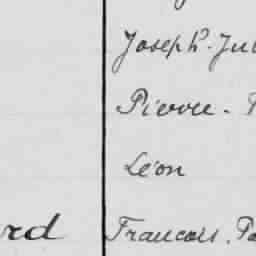 Joseph. Jul
Pierre. 
Léon
rd Francois. Pa